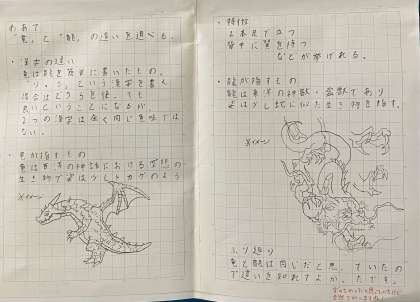 めあて
"竜"と"龍"の違いを調べる。
・漢字の違い
竜は龍を簡単に書いたもの。
りゅうという漢字を書く
場合はどちらを使っても
良いということになるが
2つの漢字は全く同じ意味では
ない。
・竜が指すもの
竜は西洋の神話における空想の
生き物で姿は少しトカゲのよう
※イメージ
・特徴
2本足で立つ
背中に翼を持つ
などが挙げられる。
・龍が指すもの
龍は東洋の神獣・霊獣であり
姿は少し蛇に似た生き物を指す。
※イメージ
ふり返り
竜と龍は同じだと思っていたの
で違いを知れてよかったです。